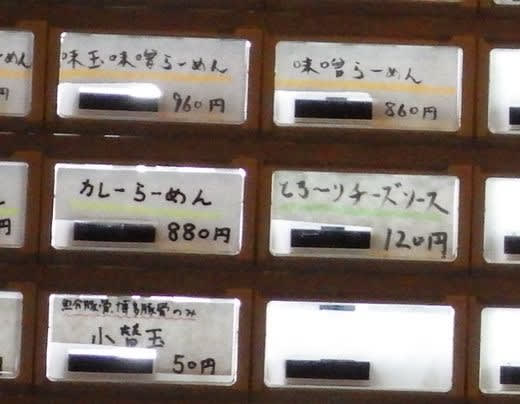 らーめん
味玉味噌らーめん
960円
味噌らーめん
860円
円
カレーらーめん
880円
とろ〜りチーズソース
120円
豚骨、博多豚骨のみ
小替玉
50円